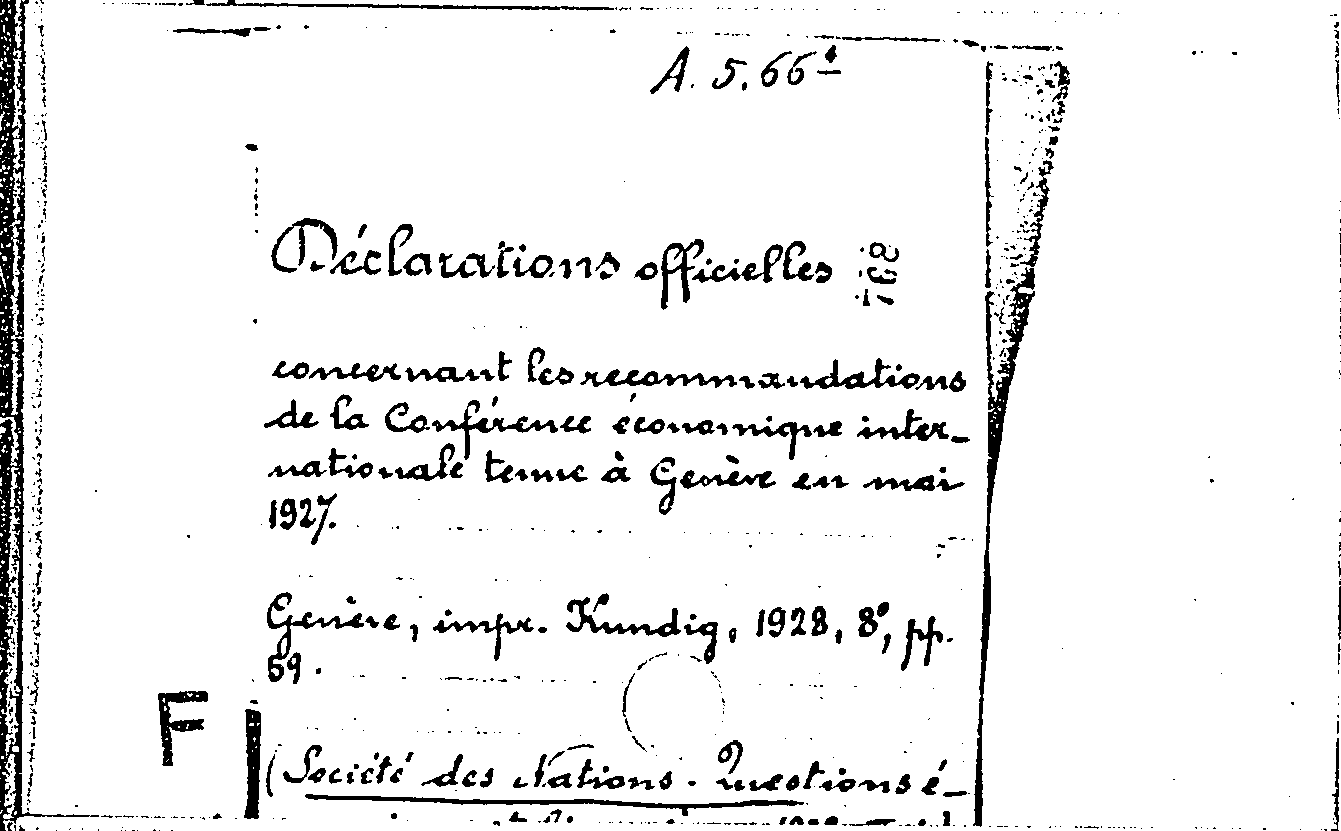 A. 5. 66⁴
Déclarations officielles
concernant les recommandations
de la Conférence économique inter-
nationale tenue à Genève en mai
1927.
Genève, impr. Kundig, 1928, 8°, pp.
59.
F
(Société des Nations. Questions é-